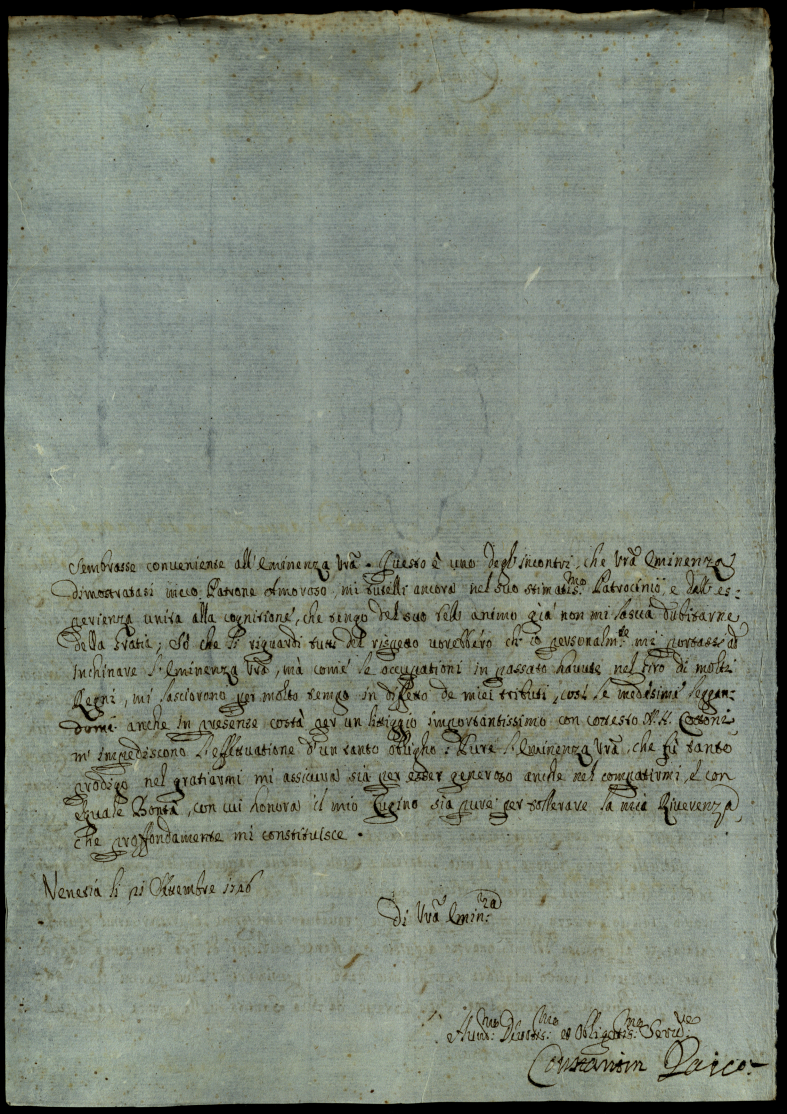 sembrasse conveniente all'Eminenza Vrã. Questo è uno degl'incontri, che Vrã Eminenza
dimostratasi meco Patrone Amoroso, mi tutelli ancora nel suo stimatis:mo Patrocinio, e dall'es-
perienza unita alla cognitione, che tengo del suo bell'animo già non mi lascia dubitarne
della Gratia; Sò che li riguardi tuti del rispetto vorebbero ch'io personalm:te mi portassi ad
Inchinare l'Eminenza Vrã, mà come le occupationi in passato havute nel giro di molti
Regni, mi lasciorono per molto tempo in diffetto de miei tributi, così le medesime
anche in presense costà per un litiggio importantissimo con cotesto N. H.
m'impediscono l'effettuatione d'un tanto obligho: Pure l'Eminenza Vrã, che fù tanto
prodigo nel gratiarmi mi assicura sia per esser generoso anche nel compatirmi, e con
eguale Bontà, con cui honora il mio Cugino sia pure per tollerare la mia Riverenza,
che proffondamente mi constituisce.
Venetia li 21 Settembre 1726
Di Vrã Emin:za
Humil:mo Divotis:mo et Obligatis:mo Serv:re
Constantin